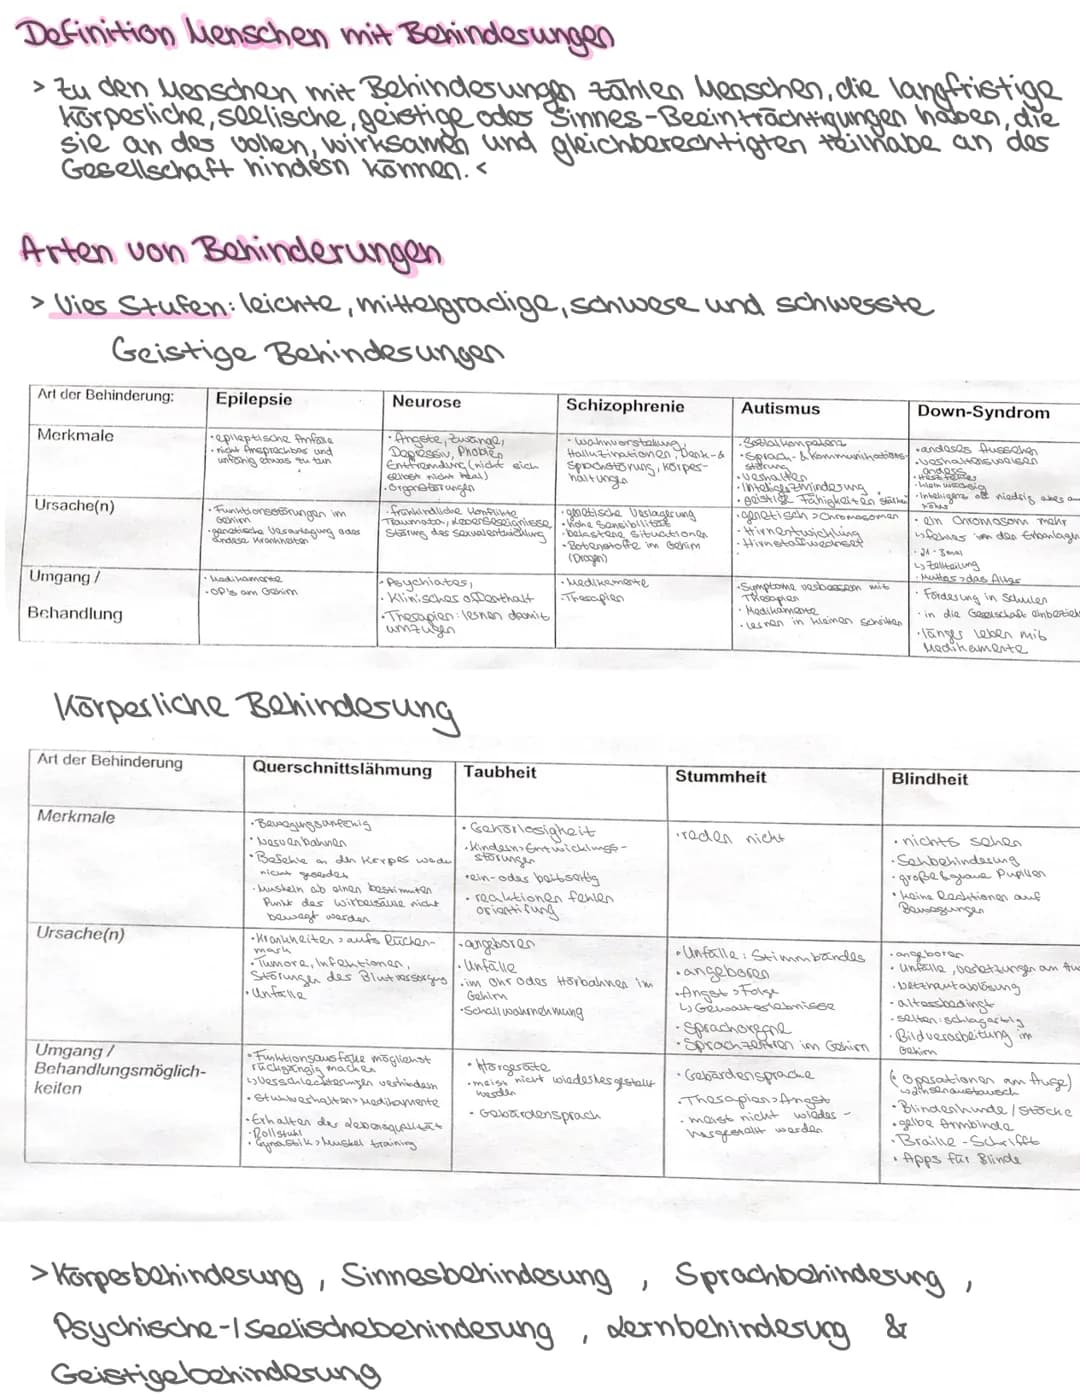 Definition Menschen mit Behinderungen
> Zu den Menschen mit Behinderungen zählen Menschen, die langfristige
körperliche, seelische, geistige oder Sinnes-Beeinträchtigungen haben, die
sie an der vollen, wirksamen und gleichberechtigten teilhabe an der
Gesellschaft hindern können. <
Arten von Behinderungen
> Vier Stufen: leichte, mittelgradige, schwere und schwerste
Geistige Behinderungen
Art der Behinderung:
Epilepsie
Neurose
Schizophrenie
Autismus
Down-Syndrom
Merkmale
• epileptische Anfälle
• nicht Ansprechbar und
unfähig etwas zu tun
• Ängste, Zwänge,
Depressiv, Phobien
Entfremdung (nicht sich
selbst nicht real)
• Organstörungen
• Wahnvorstellung,
Halluzinationen, Denk- &
Sprachstörung, Körper-
haltungen
• Sozialkompetenz
• Sprach- & Kommunikations-
störung
• Verhalten
• Intelligenzminderung
• geistige Fähigkeiten stärker
• anderes Aussehen
• Verhaltensweisen
anders
• Herzfehler
• kleinwüchsig
• Intelligenz oft niedrig aber
Ursache(n)
• Funktionsstörungen im
Gehirn
• genetische Veranlagung oder
andere Krankheiten
• frühkindliche Konflikte
Traumata, Lebensereignisse
Störung der Sexualentwicklung
• genetische Veranlagerung
• hohe Sensibilität
• belastene Situationen
• Botenstoffe im Gehirn
(Drogen)
• genetisch > Chromosomen
• Hirnentwicklung
• Hirnstoffwechsel
• ein Chromosom mehr
↳ Fehler in den Erbanlagen
• 21 - 3mal
↳ Zellteilung
• Mutter > das Alter
Umgang /
Behandlung
• Medikamente
• OP's am Gehirn
• Psychiater,
• Klinischer Aufenthalt
• Therapien: lernen damit
umzugehen
• Medikamente
• Therapien
• Symptome verbessern mit
Therapien
• Medikamente
• lernen in kleinen Schritten
• Förderung in Schulen
• in die Gesellschaft einbeziehen
• länger leben mit
Medikamente
Körperliche Behinderung
Art der Behinderung
Querschnittslähmung
Taubheit
Stummheit
Blindheit
Merkmale
• Bewegungsunfähig
• Nervenbahnen
• Befehle an den Körper
nicht
• Muskeln ab einen bestimmten
Punkt der Wirbelsäule nicht
bewegt werden
• Gehörlosigkeit
• Kindern: Entwicklungs-
störungen
• ein- oder beitseitig
• reaktionen fehlen
orientifung
• reden nicht
• nichts sehen
• Sehbehinderung
• große & graue Pupillen
• keine Reaktionen auf
Bewegungen
Ursache(n)
• Krankheiten > aufs Rücken-
mark
• Tumore, Infektionen,
Störungen des Blutversorgers
• Unfälle
• angeboren
• Unfälle
• im Ohr oder Hörbahnen im
Gehirn
• Schallwahrnehmung
• Unfälle: Stimmbänder
• angeboren
• Angst > Folge
↳ Gewalterlebnisse
• Sprachorgane
• Sprachzentren im Gehirn
• angeboren
• Unfälle, Verletzungen am
• Netzhautablösung
• altersbedingt
• selten: schlagartig
• Bildverarbeitung im
Gehirn
Umgang /
Behandlungsmöglich-
keiten
• Funktionsausfälle möglichst
rückgängig machen
↳ Verschlechterungen verhindern
• Stuhlverhalten > Medikamente
• Erhalten der Lebensqualität
• Rollstuhl
• Gymastik > Muskel training
• Hörgeräte
• meist nicht wiederhergestellt
werden
• Gebärdensprach
• Gebärdensprache
• Therapien > Angst
• meist nicht wieder-
hergestellt werden
(Operationen am Auge)
• Linsenaustausch
• Blindenhunde / Stöcke
• gelbe Armbinde
• Braille-Schrifft
• Apps für Blinde
> Körperbehinderung, Sinnesbehinderung, Sprachbehinderung,
Psychische-/Seelischebehinderung, Lernbehinderung &
Geistigebehinderung